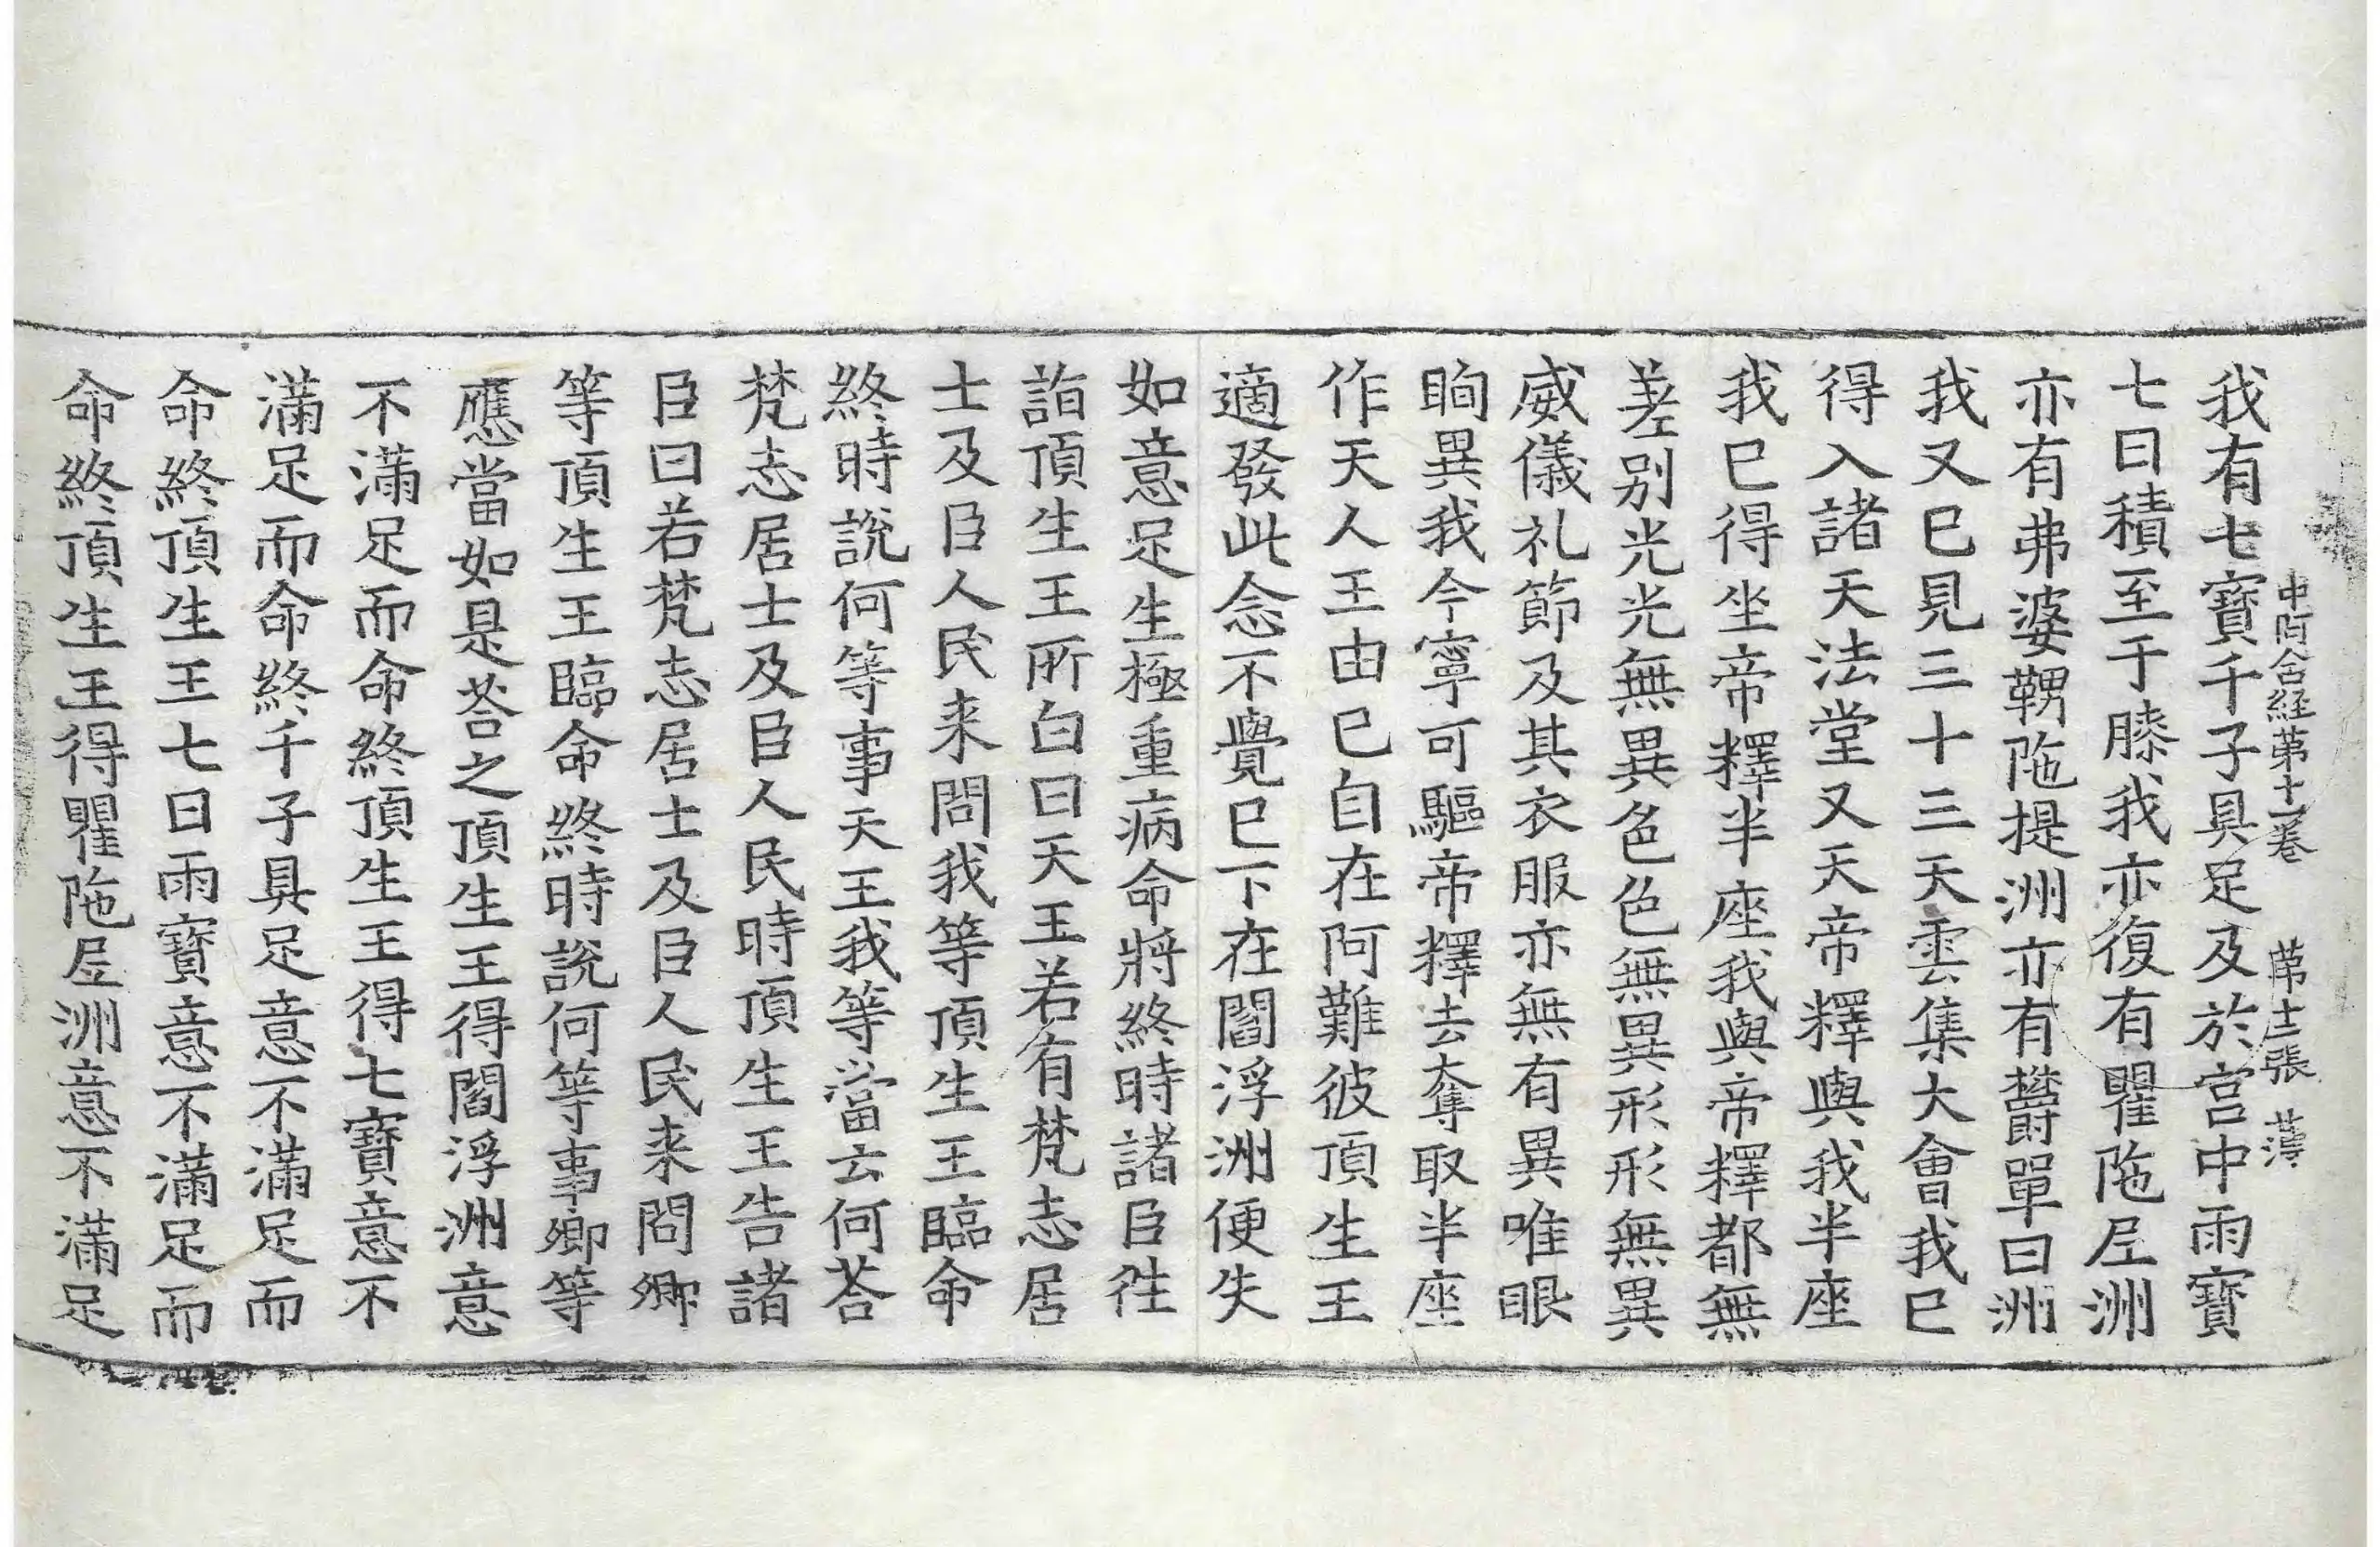 中阿含経第十一卷 第十二張 薄
我有七寶千子具足及於宮中雨寶
七日積至于膝我亦復有瞿陁尼洲
亦有弗婆鞞陁提洲亦有欝單曰洲
我又已見三十三天雲集大會我已
得入諸天法堂又天帝釋與我半座
我已得坐帝釋半座我與帝釋都無
差別光光無異色色無異形形無異
威儀礼節及其衣服亦無有異唯眼
眴異我今寧可驅帝釋去奪取半座
作天人王由已自在阿難彼頂生王
適發此念不覺已下在閻浮洲便失
如意足生極重病命將終時諸臣徃
詣頂生王所白曰天王若有梵志居
士及臣人民来問我等頂生王臨命
終時說何等事天王我等當云何荅
梵志居士及臣人民時頂生王告諸
臣曰若梵志居士及臣人民来問卿
等頂生王臨命終時說何等事卿等
應當如是荅之頂生王得閻浮洲意
不滿足而命終頂生王得七寶意不
滿足而命終千子具足意不滿足而
命終頂生王七日雨寶意不滿足而
命終頂生王得瞿陁尼洲意不滿足